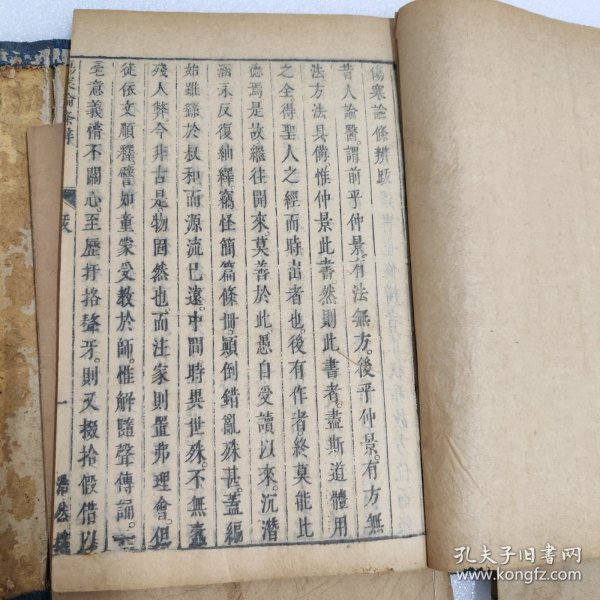 傷寒論條辨跋
昔人論醫謂前乎仲景有法無方後乎仲景有方無
法方法具備惟仲景此書然則此書者盡斯道體用
之全得聖人之經而時出者也後有作者終莫能比
德焉是故繼往開來莫善於此愚自受讀以來沉潛
涵泳反復紬釋竊怪簡篇條冊顛倒錯亂殊甚蓋編
始雖繇於叔和而源流已遠中間時異世殊不無蠹
殘人弊今非古是物固然也而注家則置弗理會但
徒依文順釋譬如童蒙受教於師惟解隨聲傳誦一
毫意義懵不關心至歷扞挌聱牙則又掇拾假借以
傷寒論條辨
跋
一
浩然樓
孔夫子旧书网
www.kongfz.com